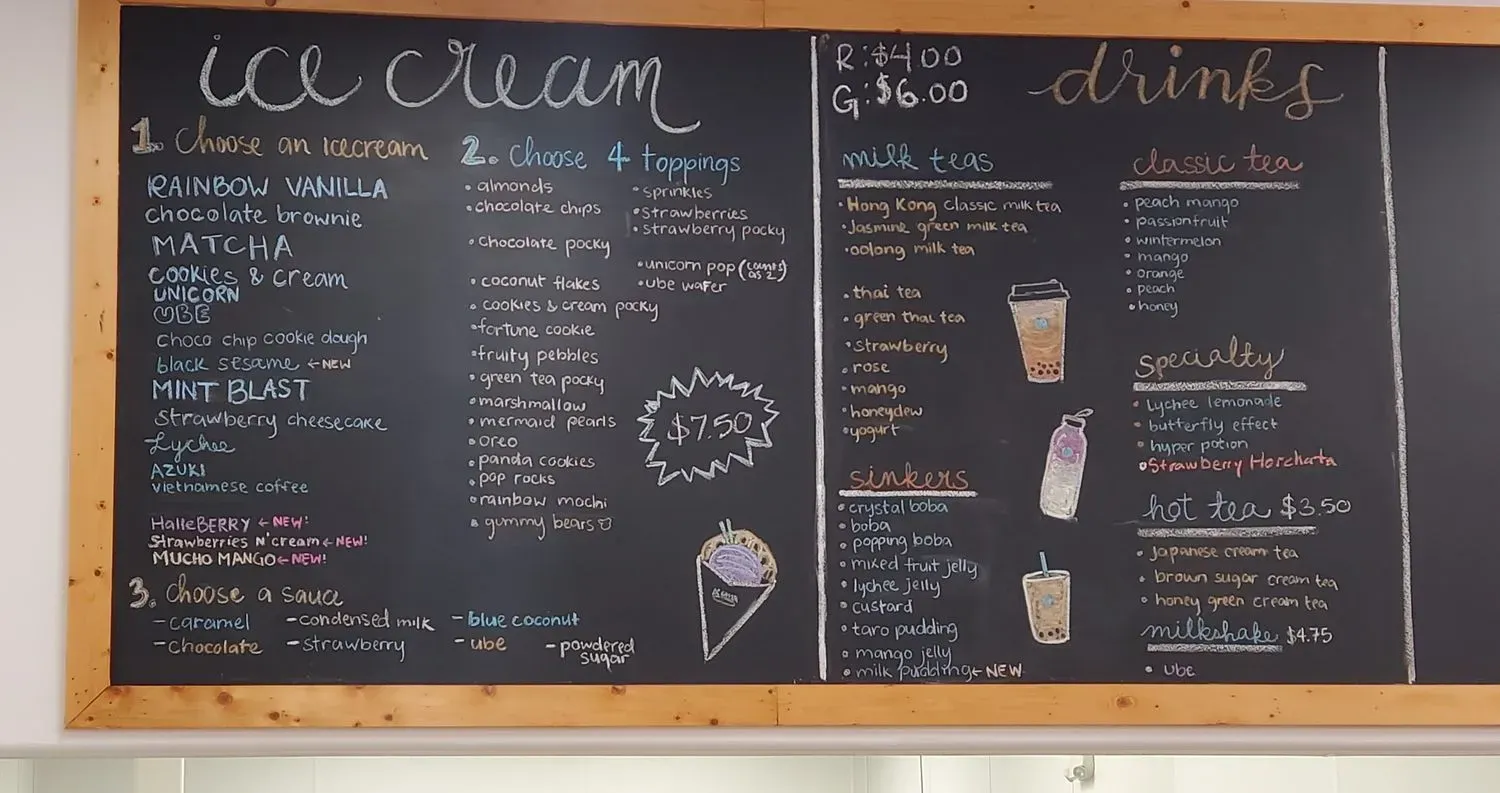 ice cream
1. Choose an icecream
RAINBOW VANILLA
chocolate brownie
MATCHA
cookies & cream
UNICORN
UBE
choco chip cookie dough
black sesame ← NEW
MINT BLAST
Strawberry cheesecake
Lychee
AZUKI
vietnamese coffee
HalleBERRY ← NEW!
Strawberries N'cream ← NEW!
MUCHO MANGO ← NEW!
2. Choose 4 toppings
• almonds
• chocolate chips
• chocolate pocky
• coconut flakes
• cookies & cream pocky
• fortune cookie
• fruity pebbles
• green tea pocky
• marshmallow
• mermaid pearls
• oreo
• panda cookies
• pop rocks
• rainbow mochi
• gummy bears
• sprinkles
• strawberries
• strawberry pocky
• unicorn pop (counts as 2)
• ube wafer
$7.50
3. Choose a sauce
- caramel
- condensed milk
- blue coconut
- chocolate
- strawberry
- ube
- powdered
sugar
R: $4.00
G: $6.00
drinks
milk teas
• Hong Kong classic milk tea
• Jasmine green milk tea
• oolong milk tea
• thai tea
• green thai tea
• strawberry
• rose
• mango
• honeydew
• yogurt
sinkers
• crystal boba
• boba
• popping boba
• mixed fruit jelly
• lychee jelly
• custard
• taro pudding
• mango jelly
• milk pudding ← NEW
classic tea
• peach mango
• passionfruit
• wintermelon
• mango
• orange
• peach
• honey
specialty
• lychee lemonade
• butterfly effect
• hyper potion
• Strawberry Horchata
hot tea $3.50
• Japanese cream tea
• brown sugar cream tea
• honey green cream tea
milkshake $4.75
• ube